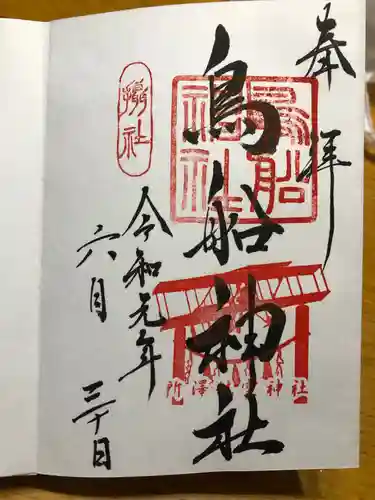 奉拝
鳥船神社
鳥船神社
所澤神明社
摂社
令和元年
六月三十日